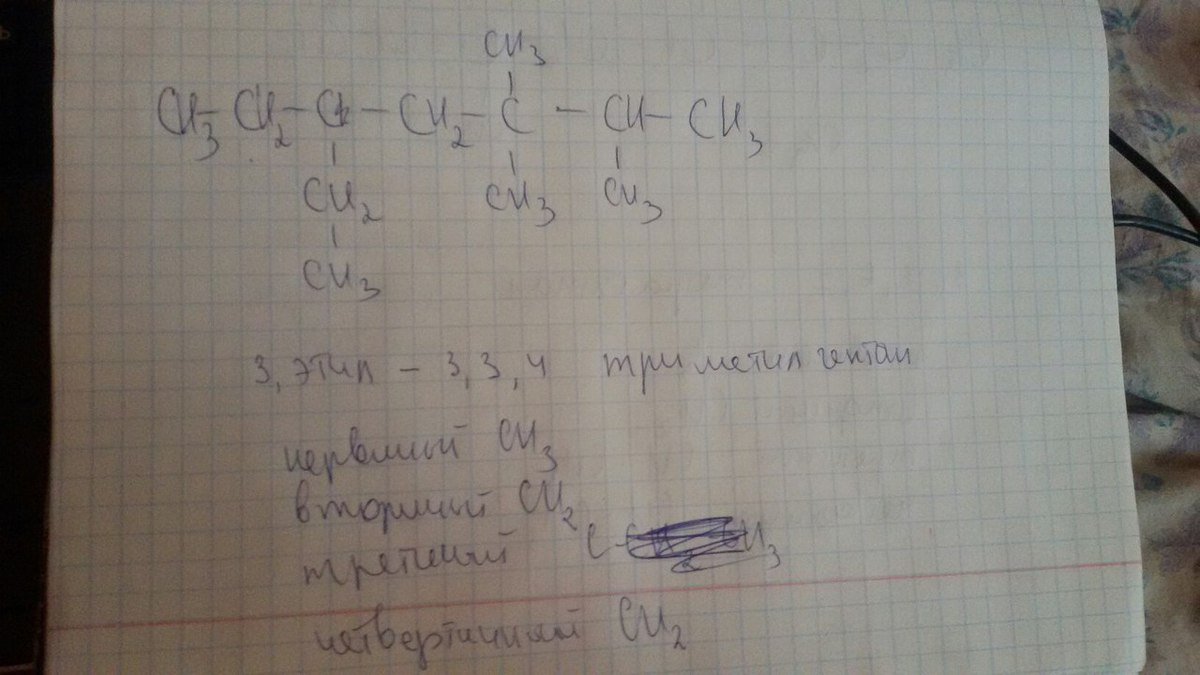 CH3
CH3 - CH2 - CH - CH2 - C - CH - CH3
CH2 CH3 CH3
CH3
3, этил - 3, 3, 4 триметил гептан
первичный CH3
вторичный CH2
третичный C - CH3
четвертичный CH2